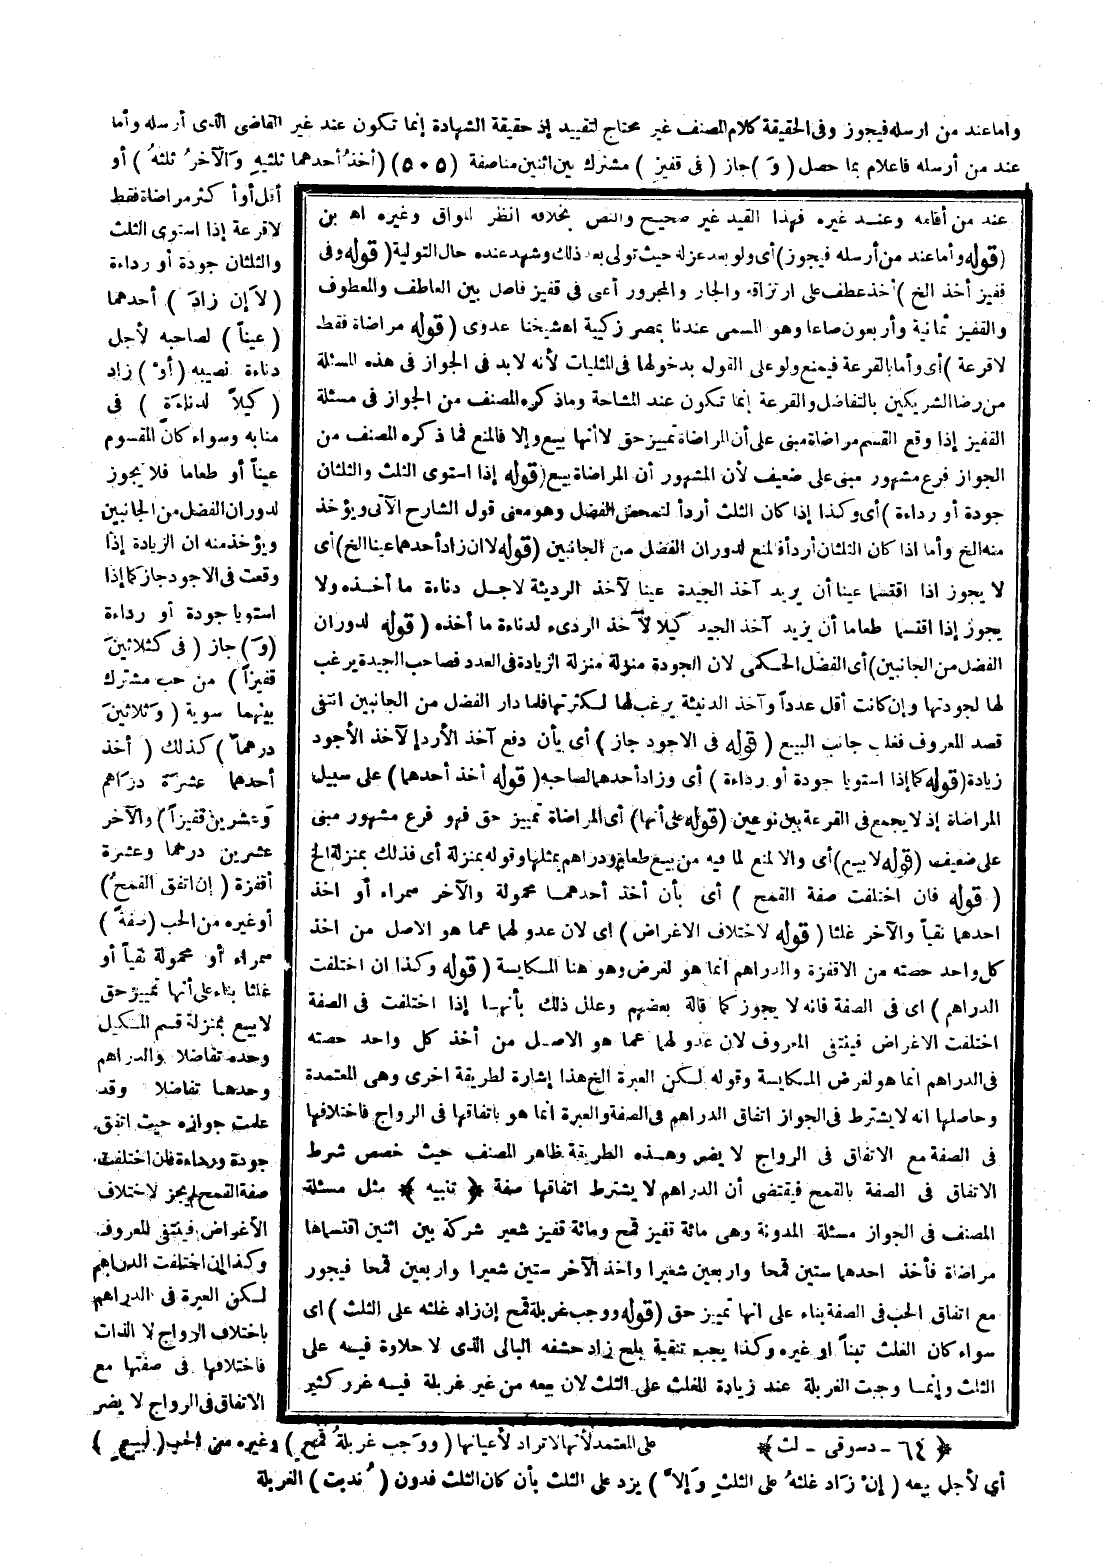 وأما عند من أرسله فيجوز وفى الحقيقة كلام المصنف غير محتاج لتقييد إذ حقيقة الشهادة إنما تكون عند غير القاضى الذى أرسله وأما
عند من أرسله فاعلام بما حصل ( وَ ) جاز ( فى قفيز ) مشترك بين اثنين مناصفة (٥٠٥) ( أخذُ أحدهما ثلثيهِ وَالآخرُ ثلثهُ ) أو
أقل أو أكثر مراضاة فقط
لاقرعة إذا استوى الثلث
والثلثان جودة أو رداءة
( لاَ إن زادَ ) أحدهما
( عيناً ) لصاحبه لأجل
دناءة نصيبه ( أوْ ) زاد
( كيلاً لدناءَة ) فى
منابه وسواء كان المقسوم
عيناً أو طعاما فلا يجوز
لدوران الفضل من الجانبين
ويؤخذ منه ان الزيادة إذا
وقعت فى الاجود جاز كما إذا
استويا جودة أو رداءة
(وَ) جاز ( فى كثلاثينَ
قفيزاً ) من حب مشترك
بينهما سوية ( وَثلاثينَ
درهماً ) كذلك ( أخذ
أحدهما عشرَة درَاهم
وَعشرين قفيزاً ) والآخر
عشرين درهما وعشرة
أقفزة ( إن اتفق القمحُ )
أوغيره من الحب (صفةً )
سمراء أو محمولة نقياً أو
غلثا بناء على أنها تمييز حق
لابيع بمنزلة قسم المكيل
وحده تفاضلا والدراهم
وحدها تفاضلا وقد
علمت جوازه حيث اتفق
جودة ورداءة فان اختلفت
صفة القمح لم يجز لاختلاف
الأغراض فينتفى المعروف
وكذا إن اختلفت الدراهم
لكن العبرة فى الدراهم
باختلاف الرواج لا الذات
فاختلافها فى صفتها مع
الاتفاق فى الرواج لا يضر
عند من أقامه وعند غيره فهذا القيد غير صحيح والنص بخلافه انظر المواق وغيره اه بن
(قوله وأما عند من أرسله فيجوز) أى ولو بعد عزله حيث تولى بعد ذلك وشهد عنده حال التولية (قوله وفى
قفيز أخذ الخ ) أخذ عطف على ارتزاقه والجار والمجرور أعى فى قفيز فاصل بين العاطف والمعطوف
والقفيز ثمانية وأربعون صاعا وهو المسمى عندنا بمصر زكيبة اه شيخنا عدوى (قوله مراضاة فقط
لا قرعة ) أى وأما بالقرعة فيمنع ولو على القول بدخولها فى المثليات لأنه لابد فى الجواز فى هذه المسئلة
من رضا الشريكين بالتفاضل والقرعة إنما تكون عند المشاحة وماذكره المصنف من الجواز فى مسئلة
القفيز إذا وقع القسم مراضاة مبنى على أن المراضاة تمييز حق لا أنها بيع وإلا فالمنع فما ذكره المصنف من
الجواز فرع مشهور مبنى على ضعيف لأن المشهور أن المراضاة بيع (قوله إذا استوى الثلث والثلثان
جودة أو رداءة ) أى وكذا إذا كان الثلث أردأ لتمحض الفضل وهو معنى قول الشارح الآتى ويؤخذ
منه الخ وأما اذا كان الثلثان أردأ فالمنع لدوران الفضل من الجانبين (قوله لا ان زاد أحدهما عينا الخ) أى
لا يجوز اذا اقتسما عينا أن يزيد آخذ الجيدة عينا لآخذ الرديئة لاجل دناءة ما أخذه ولا
يجوز إذا اقتسما طعاما أن يزيد آخذ الجيد كيلا لآخذ الردىء لدناءة ما أخذه ( قوله لدوران
الفضل من الجانبين) أى الفضل الحكمى لان الجودة منزلة منزلة الزيادة فى العدد فصاحب الجيدة يرغب
لها لجودتها وإن كانت أقل عدداً وآخذ الدنيئة يرغب لها لكثرتها فلما دار الفضل من الجانبين انتفى
قصد المعروف فغلب جانب البيع ( قوله فى الاجود جاز ) أى بأن دفع آخذ الأردإ لآخذ الأجود
زيادة (قوله كما إذا استويا جودة أو رداءة ) أى وزاد أحدهما لصاحبه (قوله أخذ أحدهما) على سبيل
المراضاة إذ لا يجمع فى القرعة بين نوعين (قوله على أنها) أى المراضاة تمييز حق فهو فرع مشهور مبنى
على ضعيف (قوله لابيع) أى والا لمنع لما فيه من بيع طعام ودراهم بمثلها وقوله بمنزلة أى فذلك بمنزلة الخ
( قوله فان اختلفت صفة القمح ) أى بأن أخذ أحدهما محمولة والآخر سمراء أو اخذ
احدهما نقياً والآخر غلثا ( قوله لاختلاف الاغراض ) اى لان عدولهما عما هو الاصل من اخذ
كل واحد حصته من الاقفزة والدراهم انما هو لغرض وهو هنا المكايسة ( قوله وكذا ان اختلفت
الدراهم ) اى فى الصفة فانه لا يجوز كما قاله بعضهم وعلل ذلك بأنها إذا اختلفت فى الصفة
اختلفت الاغراض فينتفى المعروف لان عدولهما عما هو الاصل من أخذ كل واحد حصته
فى الدراهم انما هو لغرض المكايسة وقوله لكن العبرة الخ هذا إشارة لطريقة اخرى وهى المعتمدة
وحاصلها انه لا يشترط فى الجواز اتفاق الدراهم فى الصفة والعبرة انما هو باتفاقها فى الرواج فاختلافها
فى الصفة مع الاتفاق فى الرواج لا يضر وهذه الطريقة ظاهر المصنف حيث خصص شرط
الاتفاق فى الصفة بالقمح فيقتضى أن الدراهم لا يشترط اتفاقها صفة ﴿ تنبيه ﴾ مثل مسئلة
المصنف فى الجواز مسئلة المدونة وهى مائة قفيز قمح ومائة قفيز شعير شركة بين اثنين اقتسماها
مراضاة فأخذ احدهما ستين قمحا واربعين شعيرا واخذ الآخر ستين شعيرا واربعين قمحا فيجوز
مع اتفاق الحب فى الصفة بناء على انها تمييز حق (قوله ووجب غربلة قمح إن زاد غلثه على الثلث ) اى
سواء كان الغلث تبناً او غيره وكذا يجب تنقية بلح زاد حشفه البالى الذى لا حلاوة فيه على
الثلث وإنما وجبت الغربلة عند زيادة الغلث على الثلث لان بيعه من غير غربلة فيه غرر كثير
على المعتمد لأنها لا تراد لأعيانها ( ووَجب غربلةُ قمحٍ ) وغيره من الحب ( لبيعٍ )
﴿ ٦٤ - دسوقى - لث ﴾
أي لأجل بيعه ( إنْ زَاد غلثهُ على الثلثِ وَإلاَّ ) يزد على الثلث بأن كان الثلث فدون ( نُدبت ) الغربلة